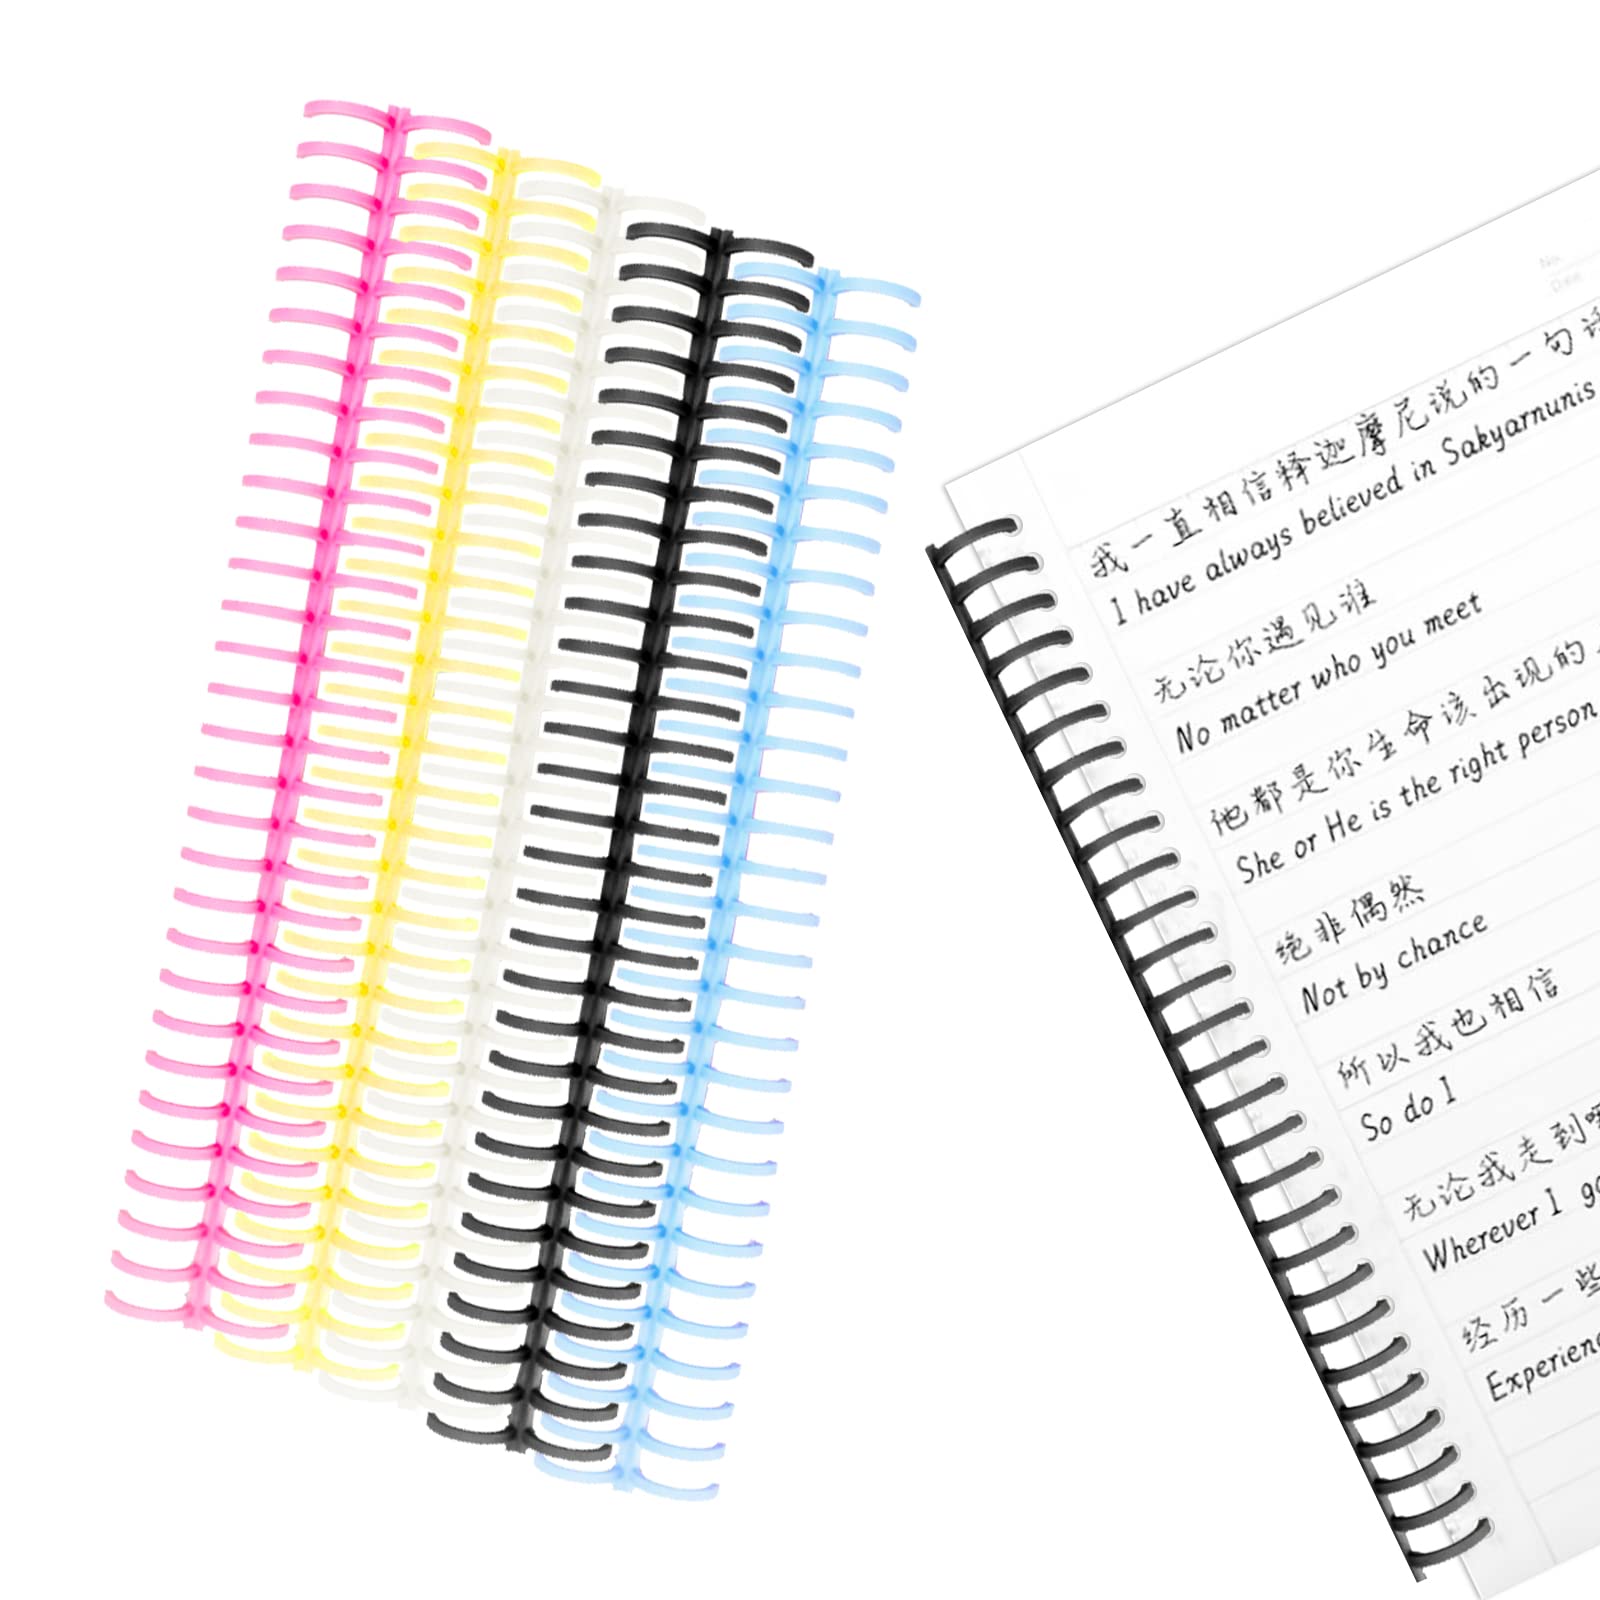 No.
Date
我一直相信释迦摩尼说的一句话
I have always believed in Sakyarnunis
无论你遇见谁
No matter who you meet
他都是你生命该出现的
She or He is the right person
绝非偶然
Not by chance
所以我也相信
So do I
无论我走到哪
Wherever I go
经历一些
Experience